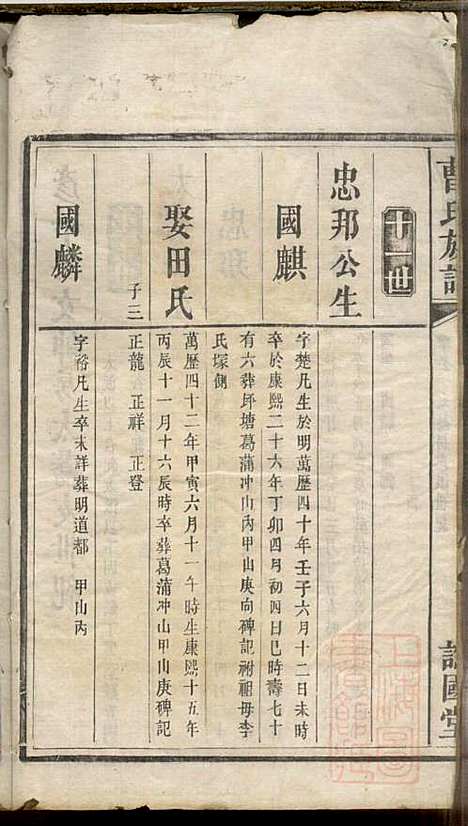 曹氏族譜
十一世
忠邦公生
國麒
字楚凡生於明萬歷四十年壬子六月十二日未時
卒於康熙二十六年丁卯四月初四日巳時壽七十
有六葬坪塘葛蒲冲山丙甲山庚向碑記祔祖母李
氏塚側
娶田氏
萬歷四十二年甲寅六月十一午時生康熙十五年
丙辰十一月十六辰時卒葬葛蒲冲山甲山庚碑記
子三
正龍 正祥 正登
國麟
字裕凡生卒未詳葬明道都 甲山丙
國堂